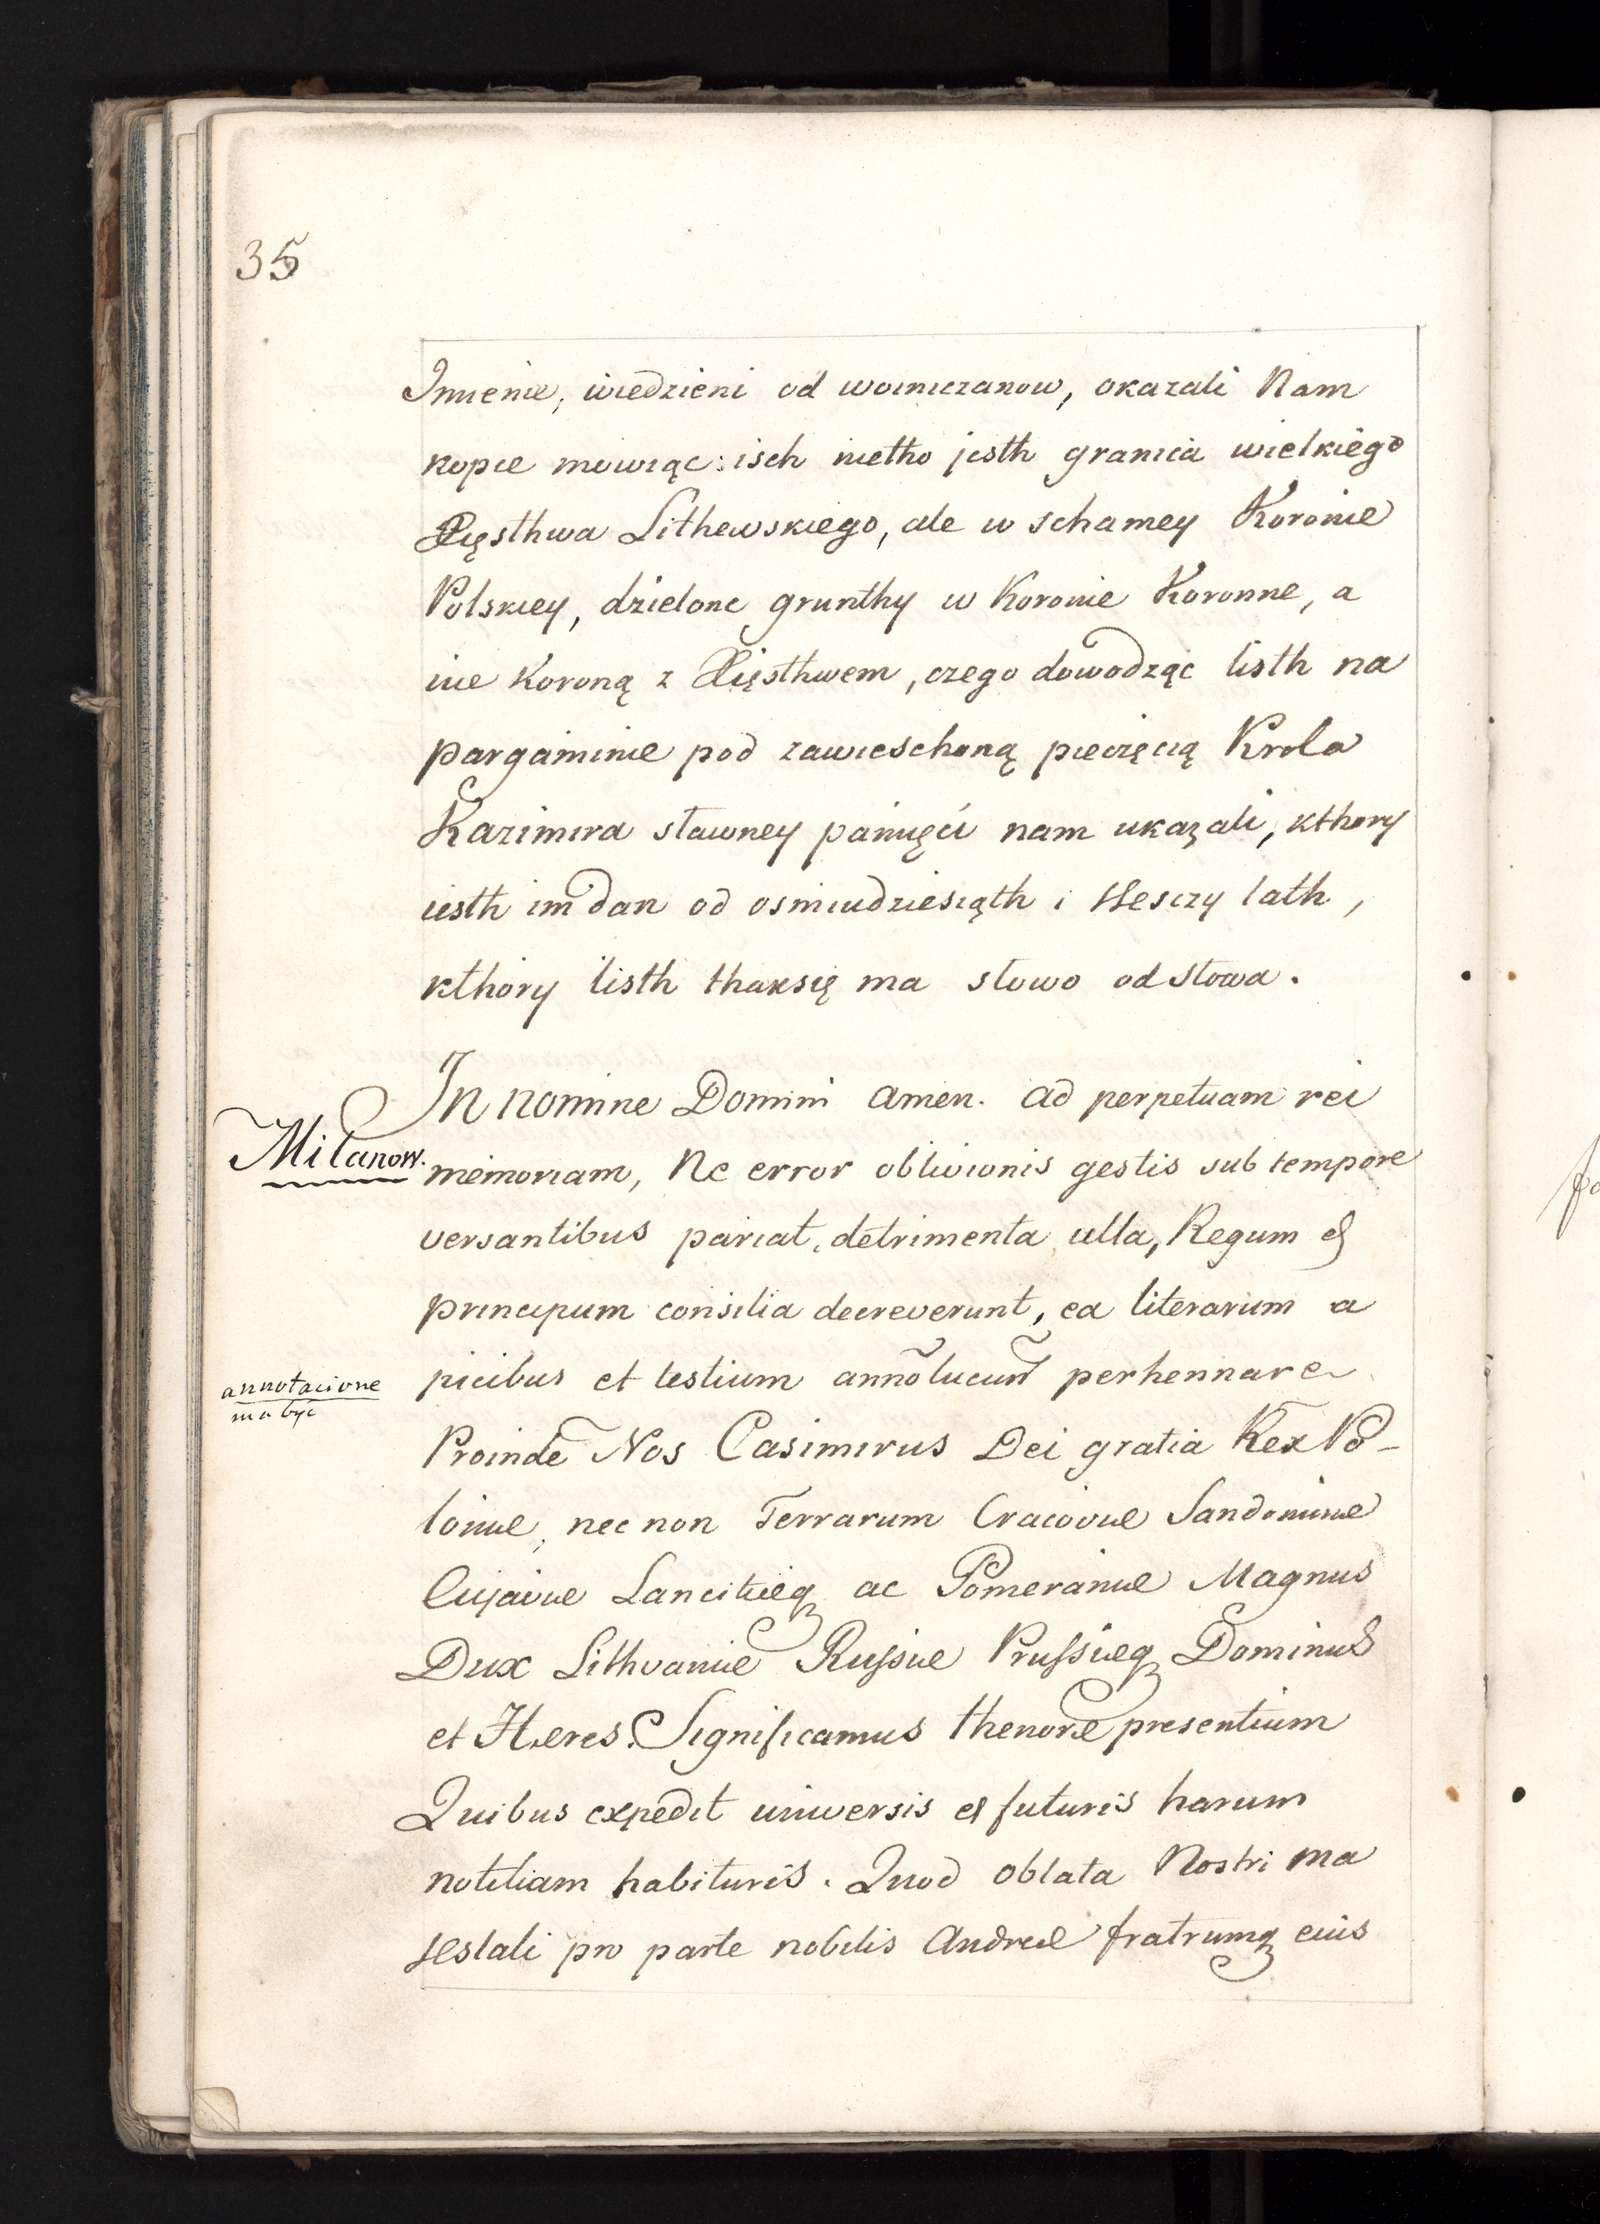 35
Imienie, wiedzieni od woiniczanow, okazali Nam
kopie mowiąc: isch nietho jesth granica wielkiego
Xięsthwa Lithewskiego, ale w schamey Koronie
Polskiey, dzielone grunthy w Koronie Koronne, a
nie Koroną z Xięsthwem, czego dowodząc listh na
pargaminie pod zawieschoną pieczęcią Krola
Kazimira sławney pamięci nam ukazali, kthory
iesth im dan od osmiudziesiąth i sesczy lath,
kthory listh thaksię ma słowo od słowa.
In nomine Domini Amen. Ad perpetuam rei
Milanow.
memoriam, Ne error oblivionis gestis sub tempore
versantibus pariat, detrimenta ulla, Regum et
principum consilia decreverunt, ea literarum a
picibus et testium annõlucuñ perhennare
annotacione
ma być
Proinde Nos Casimirus Dei gratia Rex Po-
loniæ, nec non Terrarum Cracoviæ Sandomiriæ
Cujaviæ Lancitiæq ac Pomeraniæ Magnus
Dux Lithvaniæ Russiæ Prussiæq Dominus
et Heres. Significamus thenore presentium
Quibus expedit universis et futuris harum
notitiam habituris. Quod oblata Nostri ma
jestati pro parte nobilis Andreæ fratrumq eius